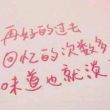 再好的过去
回忆的次数多
味道也就淡